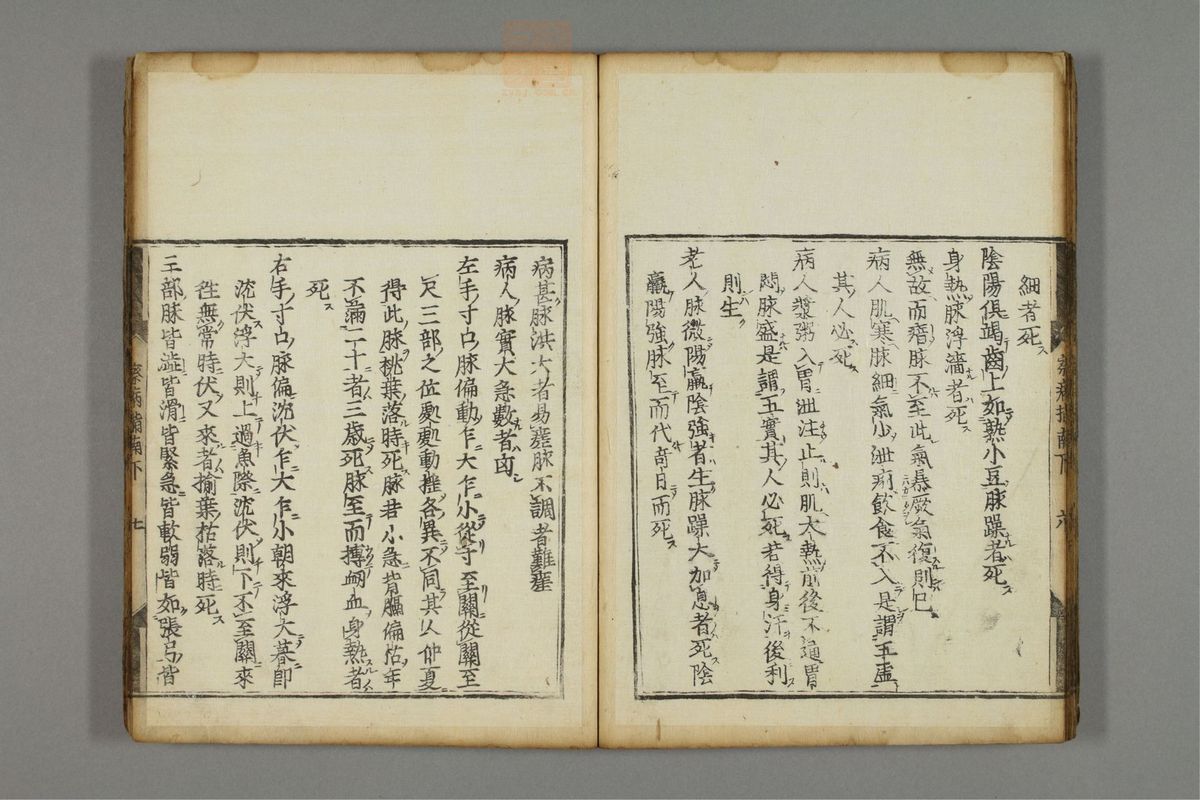 細者死
陰陽俱竭齒上如熟小豆脉躁者死
身熱脉浮濇者死
無故而瘖脉不至此氣暴厥氣復則已
病人肌寒脉細氣少泄痢飲食不入是謂五虛
其人必死
病人漿粥入胃泄注止則肌大熱前後不通胃
悶脉盛是謂五實其人必死若得身汗後利
則生
老人脉微陽羸陰強者生脉躁大加急者死陰
羸陽強脉至而代奇日而死
察病指南下
六
病甚脉洪大者易瘥脉不調者難瘥
病人脉實大急數者凶
左手寸口脉偏動乍大乍小從寸至關從關至
尺三部之位處處動搖各異不同其人仲夏
得此脉桃葉落時死脉若小急皆膈偏怙年
不滿二十者三歲死脉至而搏衂血身熱者
死
右手寸口脉偏沈伏乍大乍小朝來浮大暮即
沈伏浮大則上過魚際沈伏則下不至關來
徃無常時伏又來者揄葉怙落時死
三部脉皆澁皆滑皆緊急皆軟弱皆如張弓皆
察病指南下
七